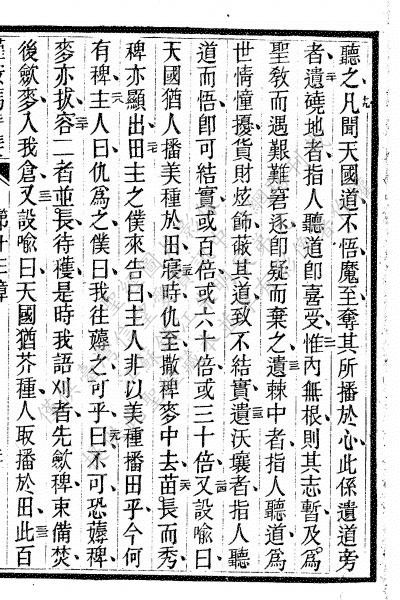 聽之凡聞天國道不悟魔至奪其所播於心此係遺道旁
者遺磽地者指人聽道卽喜受惟內無根則其志暫及爲
聖敎而遇艱難窘逐卽疑而棄之遺棘中者指人聽道爲
世情憧擾貨財炫飾蔽其道致不結實遺沃壤者指人聽
道而悟卽可結實或百倍或六十倍或三十倍又設喻曰
天國猶人播美種於田寢時仇至撒稗麥中去苗長而秀
稗亦顯出田主之僕來告曰主人非以美種播田乎今何
有稗主人曰仇爲之僕曰我往薅之可乎曰不可恐薅稗
麥亦拔容二者並長待穫是時我語刈者先斂稗束備焚
後斂麥入我倉又設喻曰天國猶芥種人取播於田此百
第十三章